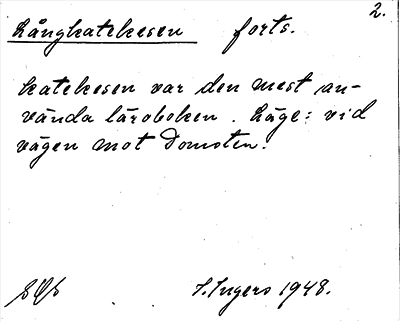 2.
Långkatekesen forts.
katekesen var den mest an-
vända läroboken. Läge: vid
vägen mot Domsten.
S. Ingers 1948.